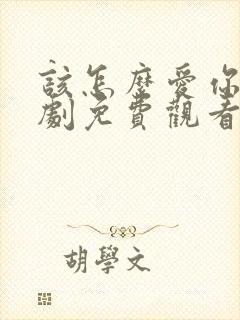 該怎麼愛你
劇免費觀看
胡學文